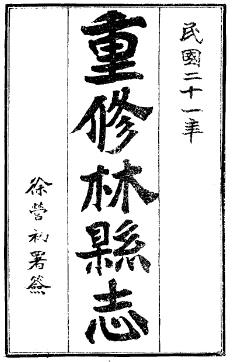 民國二十一年
重修林縣志
徐營初署簽